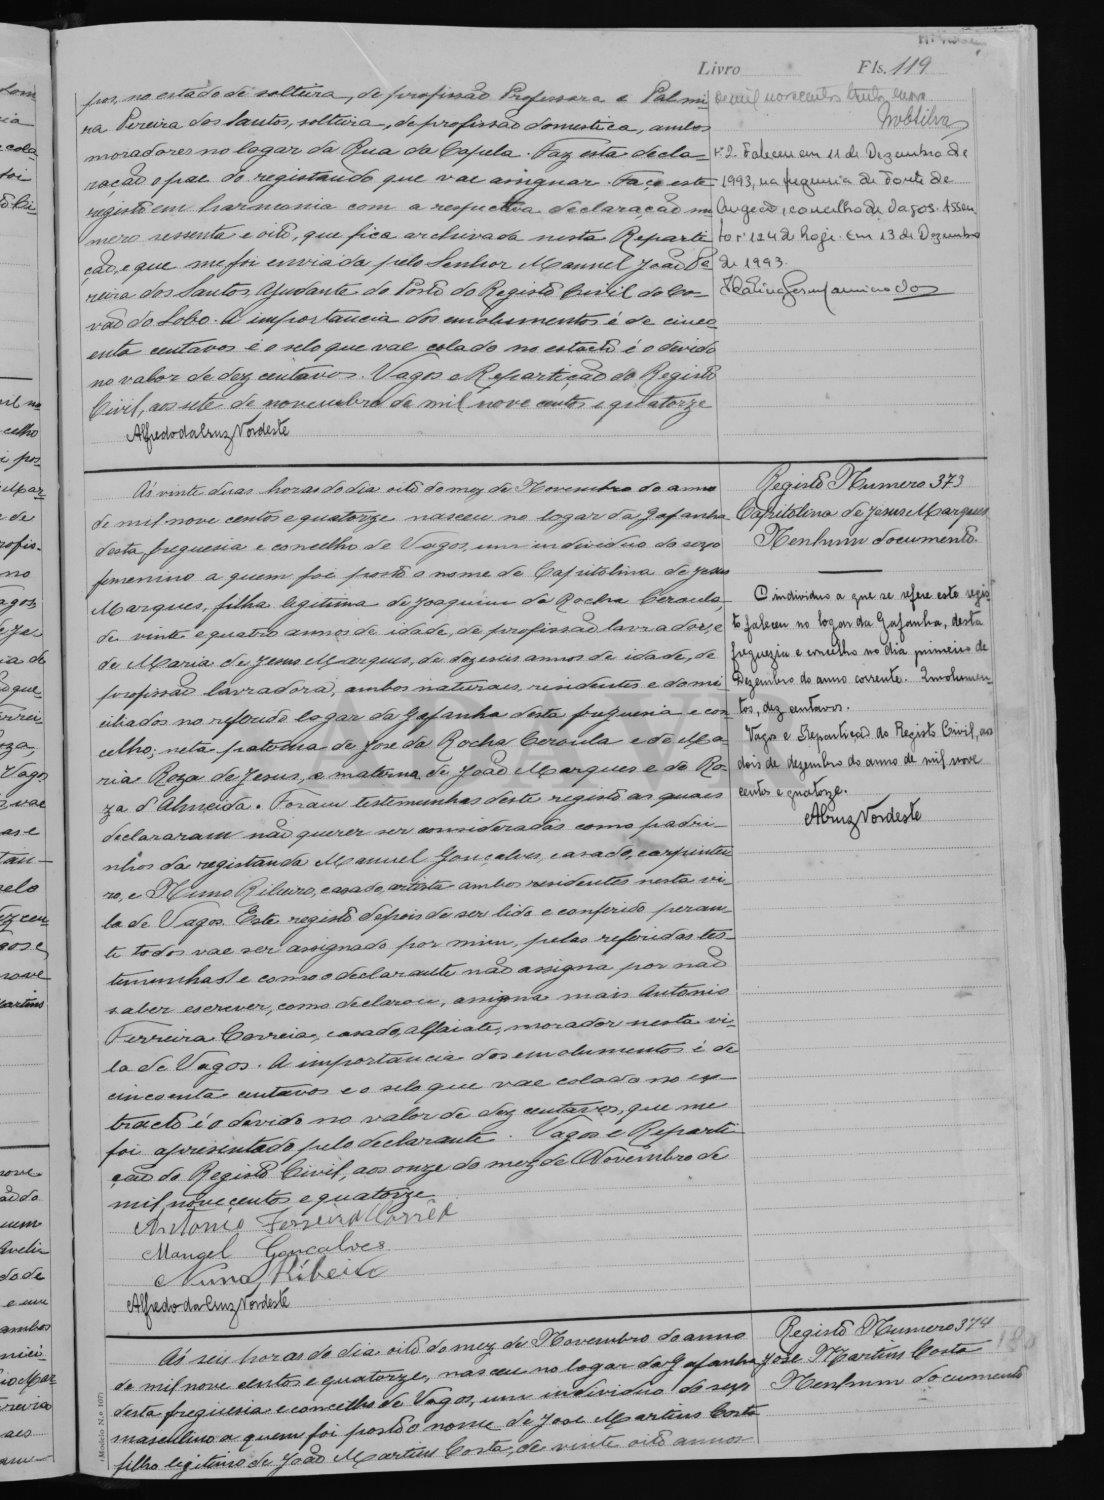 Livro Fls. 119
pos, no estado de solteira, de profissão Professora e Palmi-
ra Pereira dos Santos, solteira, de profissão domestica, ambos
moradores no logar da Rua da Capela. Faz esta decla-
ração o pae do registando que vae assignar. Faço este
registo em harmonia com a respectiva declaração nu
mero sessenta e oito, que fica archivada nesta Reparti
ção, e que me foi enviada pelo Senhor Manuel João Pe
reira dos Santos, Ajudante do Posto do Registo Civil do Co-
vão do Lobo. A importancia dos emolumentos é de cinco
enta centavos e o selo que vae colado no extracto é o devido
no valor de dez centavos. Vagos e Repartição do Registo
Civil, aos sete de novembro de mil nove centos e quatorze
Alfredo da Cruz Nordeste
de mil novecentos trinta
N.º 2. Faleceu em 11 de Dezembro de
1993, na freguesia de Fonte de
Angeão, concelho de Vagos. Assen
to nº 124 de hoje. Em 13 de Dezembro
de 1993.
Ás vinte duas horas do dia oito do mez de Novembro do anno
de mil nove centos e quatorze nasceu no logar da Gafanha
desta freguesia e concelho de Vagos, um individuo do sexo
femenino a quem foi posto o nome de Capitolina de Jesus
Marques, filha legitima de Joaquim da Rocha Ceroula,
de vinte e quatro annos de idade, de profissão lavrador, e
de Maria de Jesus Marques, de dezeseis annos de idade, de
profissão lavradora, ambos naturais, residentes e domi
ciliados no referido logar da Gafanha desta freguesia e con
celho; neta paterna de José da Rocha Ceroula e de Ma-
ria Roza de Jesus, e materna de João Marques e de Ro-
za d'Almeida. Foram testemunhas deste registo as quais
declararam não querer ser consideradas como padri-
nhos da registanda Manuel Gonçalves, casado, carpintei
ro, e Nuno Ribeiro, casado, artista ambos residentes nesta vi-
la de Vagos. Este registo depois de ser lido e conferido peran-
te todos vae ser assignado por mim, pelas referidas tes-
temunhas e como o declarante não assigna por não
saber escrever, como declarou, assigna mais Antonio
Ferreira Correia, casado, alfaiate, morador nesta vi-
la de Vagos. A importancia dos emolumentos é de
cincoenta centavos e o selo que vae colado no ex-
tracto é o devido no valor de dez centavos, que me
foi apresentado pelo declarante. Vagos e Reparti
ção do Registo Civil, aos onze do mez de Novembro de
mil nove centos e quatorze
Antonio Ferreira Corrêa
Manuel Gonçalves
Nuno Ribeiro
Alfredo da Cruz Nordeste
Registo Numero 373
Capitolina de Jesus Marques
Nenhum documento.
O individuo a que se refere este regis
to faleceu no logar da Gafanha, desta
freguezia e concelho no dia primeiro de
Dezembro do anno corrente. Emolumen-
tos, dez centavos.
Vagos e Repartição do Registo Civil, aos
dois de dezembro do anno de mil nove
centos e quatorze.
ACruz Nordeste
Ás seis horas do dia oito do mez de Novembro do anno
de mil nove centos e quatorze, nasceu no logar da Gafanha
desta freguesia e concelho de Vagos, um individuo do sexo
masculino a quem foi posto o nome de José Martins Costa
filho legitimo de João Martins Costa, de vinte oito annos
Registo Numero 374
José Martins Costa
Nenhum documento
(Modelo N.º 107)